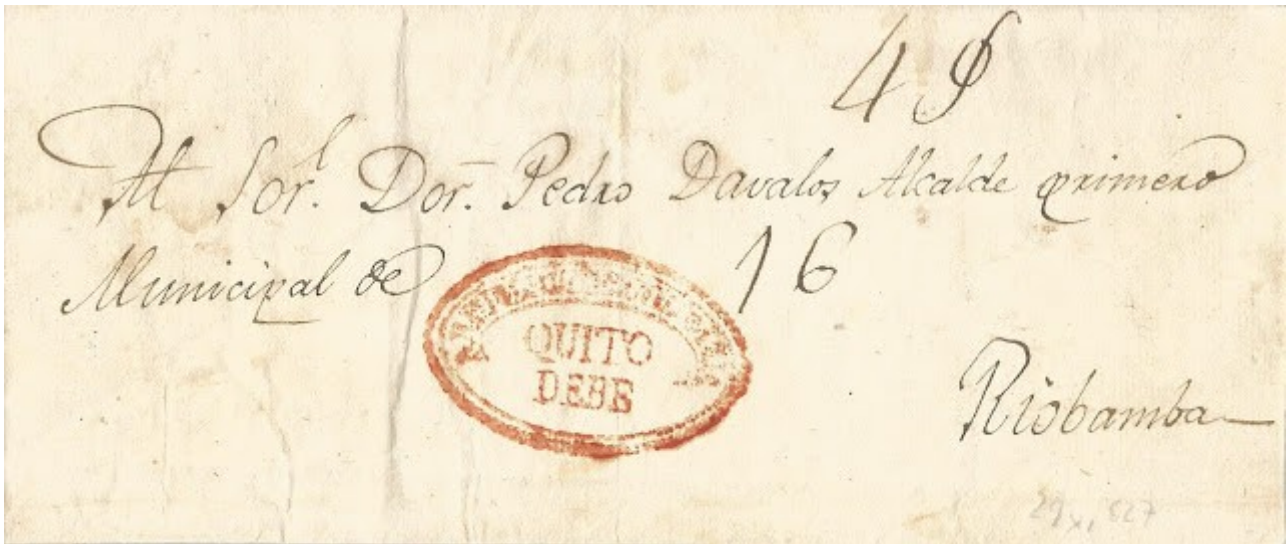 4
Al Sor. Dor. Pedro Davalos Alcalde primero
Municipal de
16
QUITO
DEBE
Riobamba